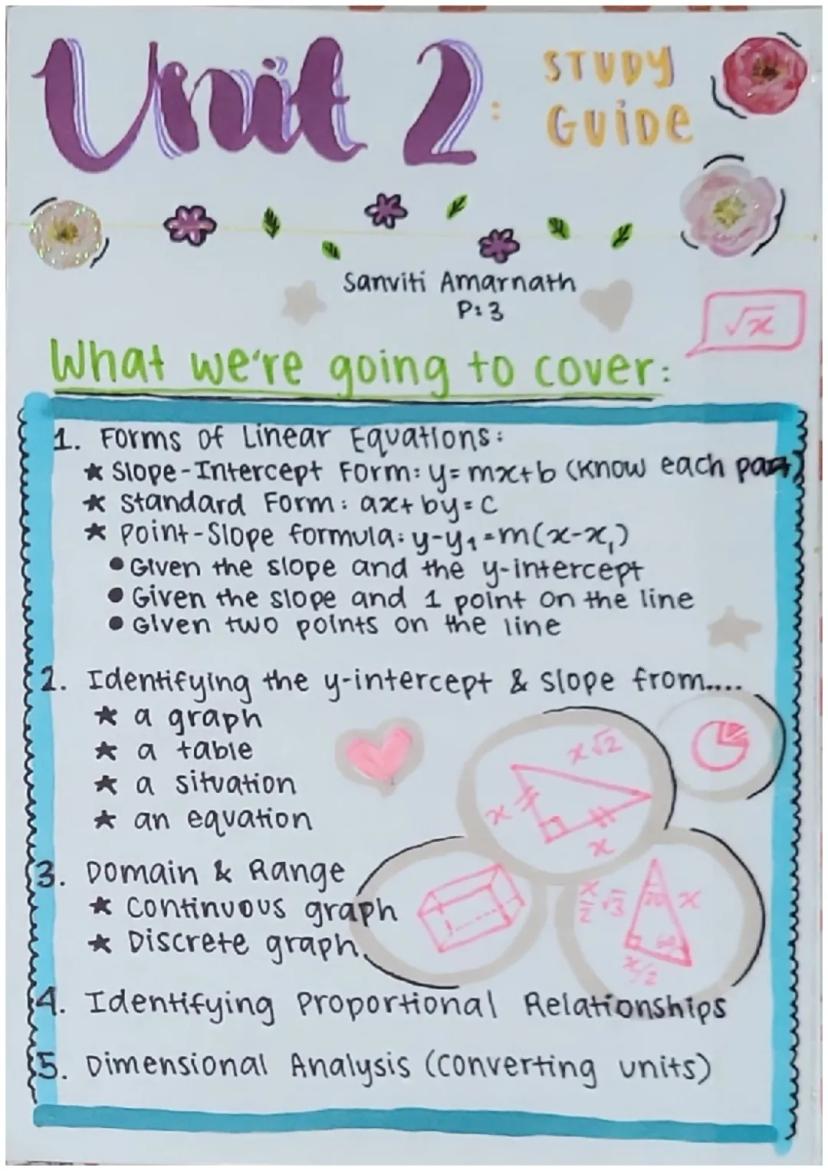 Unit 2: STUDY GUIDE
Sanviti Amarnath
P:3
√x
What we're going to cover:
1. Forms of Linear Equations:
★ Slope-Intercept Form: y=mx+b (Know each part)
★ Standard Form: ax+by=c
★ Point-Slope formula: y-y₁=m(x-x₁)
• Given the slope and the y-intercept
• Given the slope and 1 point on the line
• Given two points on the line
2. Identifying the y-intercept & slope from....
★ a graph
★ a table
★ a situation
★ an equation
x√2
x
x
3. Domain & Range
★ Continuous graph
★ Discrete graph
x/2 √3
x
x/2
4. Identifying Proportional Relationships
5. Dimensional Analysis (converting units)